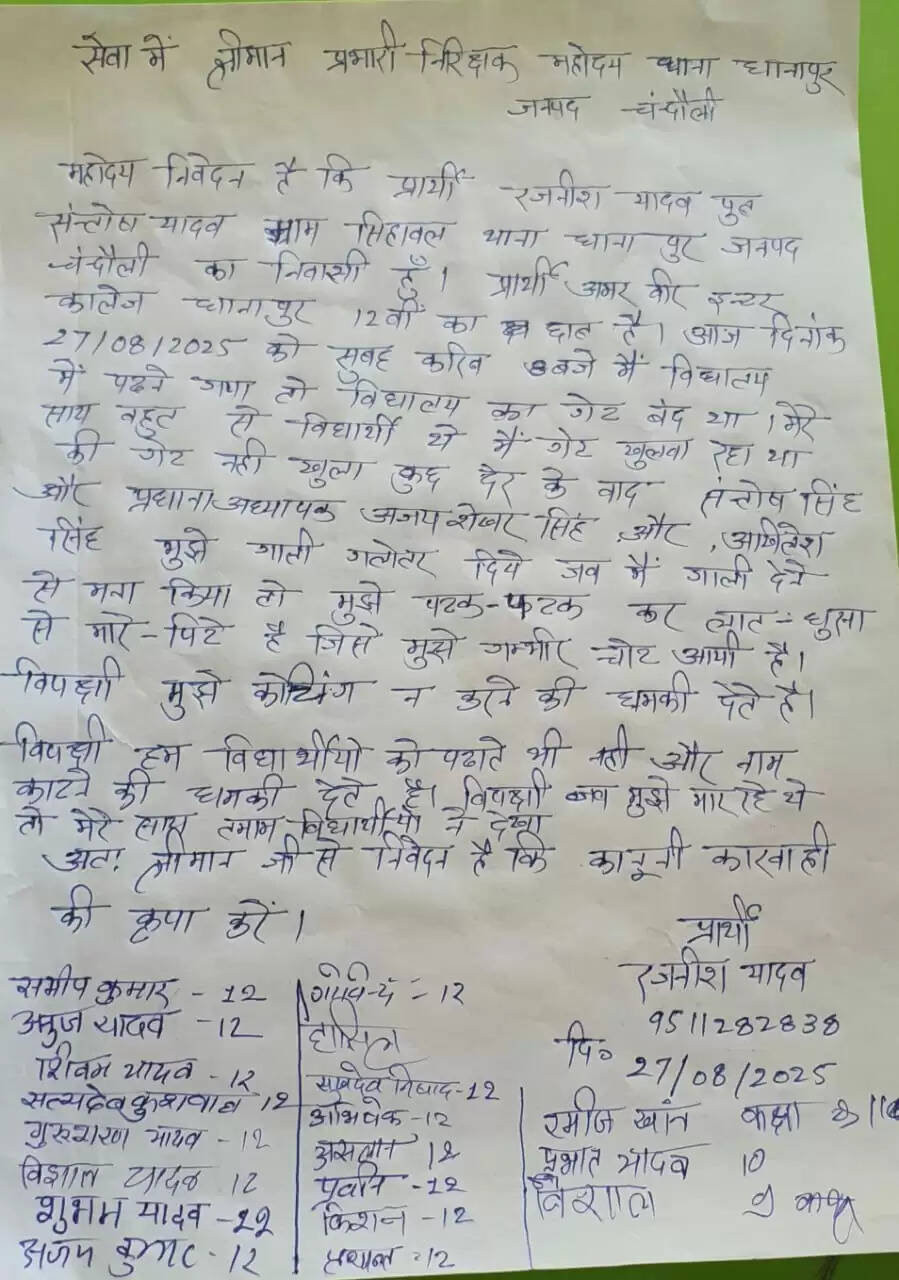 सेवा में श्रीमान प्रभारी निरिक्षक महोदय थाना धानापुर
जनपद चंदौली
महोदय निवेदन है कि प्रार्थी रजनीश यादव पुत्र
संन्तोष यादव ग्राम सिहावल थाना धानापुर जनपद
चंदौली का निवासी हूँ। प्रार्थी अमर वीर इन्टर
कालेज धानापुर 12वीं का छात्र है। आज दिनांक
27/08/2025 को सुबह करिब 8 बजे मैं विद्यालय
में पढने गया तो विद्यालय का गेट बंद था। मेरे
साथ बहुत से विद्यार्थी थे मैं गेट खुलवा रहा था
की गेट नही खुला कुछ देर के बाद संन्तोष सिंह
और प्रधाना अध्यापक अजय शेखर सिंह और, अखिलेश
सिंह मुझे गाली गलोतर दिये जब मैं गाली देने
से मना किया तो मुझे पटक-पटक कर लात-घुसा
से मारे-पिटे है जिसे मुझे गम्भीर चोट आयी है।
विपक्षी मुझे कोचिंग न करने की धमकी देते है।
विपक्षी हम विद्यार्थीयो को पढाते भी नही और नाम
काटने की धमकी देते है। विपक्षी जब मुझे मार रहे थे
तो मेरे साथ तमाम विद्यार्थीयो ने देखा
अतः श्रीमान जी से निवेदन है कि कानूनी कारवाही
की कृपा करें।
प्रार्थी
रजनीश यादव
9511282838
दि० 27/08/2025
समीप कुमार - 12
अनुज यादव - 12
शिवम यादव - 12
सत्यदेव कुशवाहा 12
गुरुशरण यादव - 12
विशाल यादव 12
शुभम यादव - 12
अजय कुमार - 12
गोविन्द - 12
हासिल
सुखदेव निषाद - 12
अभिषेक - 12
असलान 12
प्रवीन - 12
किशन - 12
प्रशान्त - 12
रमीज खांन कक्षा
प्रभात यादव 10
विशाल